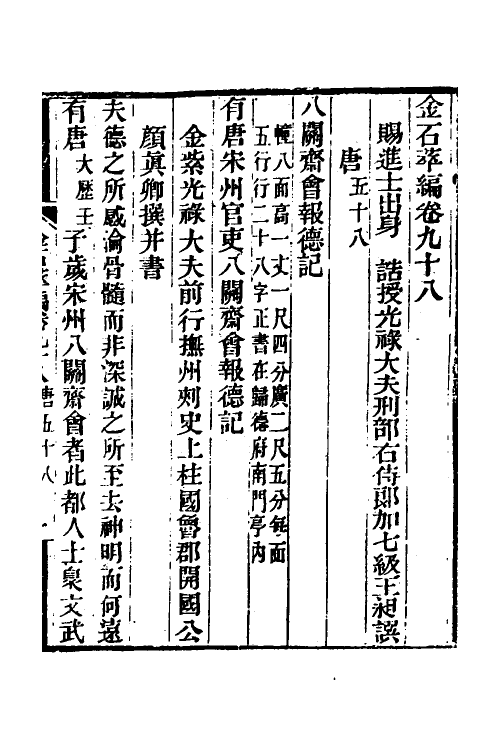 金石萃編卷九十八
賜進士出身　誥授光祿大夫刑部右侍郎加七級王昶譔
唐五十八
八關齋會報德記
幢八面高一丈一尺四分廣二尺五分每面
五行行二十八字正書在歸德府南門亭內
有唐宋州官吏八關齋會報德記
金紫光祿大夫前行撫州刺史上柱國魯郡開國公
顏眞卿撰并書
夫德之所感淪骨髓而非深誠之所至去神明而何遠
有唐大歷壬子歲宋州八關齋會者此都人士眾文武
金石萃編卷九十八唐五十八　一